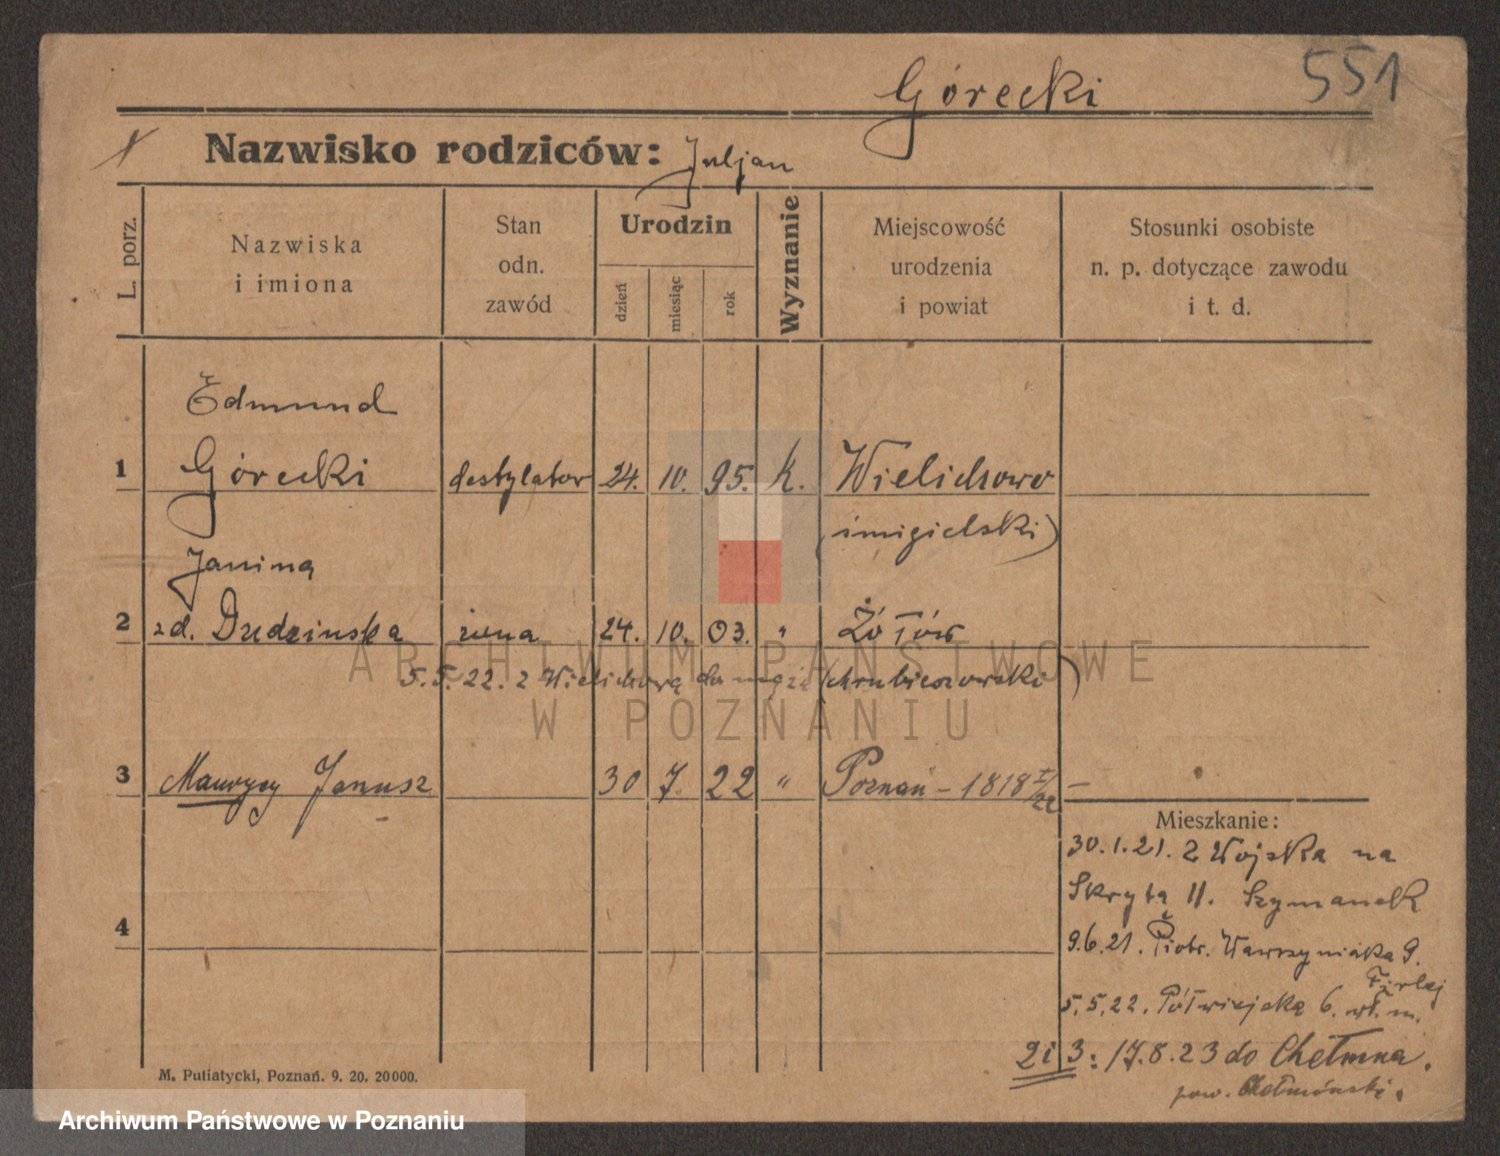 Górecki 551
Nazwisko rodziców: Juljan
L. porz.
Nazwiska
i imiona
Stan
odn.
zawód
Urodzin
dzień
miesiąc
rok
Wyznanie
Miejscowość
urodzenia
i powiat
Stosunki osobiste
n. p. dotyczące zawodu
i t. d.
Edmund
1 Górecki destylator 24. 10. 95. k. Wielichowo
(śmigielski)
Janina
2 zd. Dudzinska żona 24. 10. 03. " Żółów
5.5.22. z Wielichowa do męża (hrubieszowski)
3 Maurycy Janusz 30 7. 22 " Poznań - 1818 I/22 -
Mieszkanie:
30.1.21. z Wojska na
Skryta 11. Szymanek
4
9.6.21. Piotr. Wawrzyniaka 9.
Firlej
5.5.22. Półwiejska 6. wł. m.
2 i 3: 17.8.23 do Chełmna.
pow. Chełmiński.
M. Putiatycki, Poznań. 9. 20. 20000.
ARCHIWUM PAŃSTWOWE
W POZNANIU
Archiwum Państwowe w Poznaniu